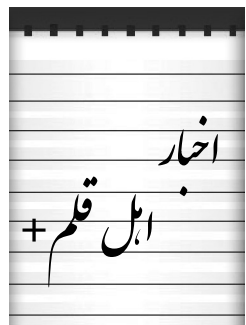 اخبار
اهل قلم+